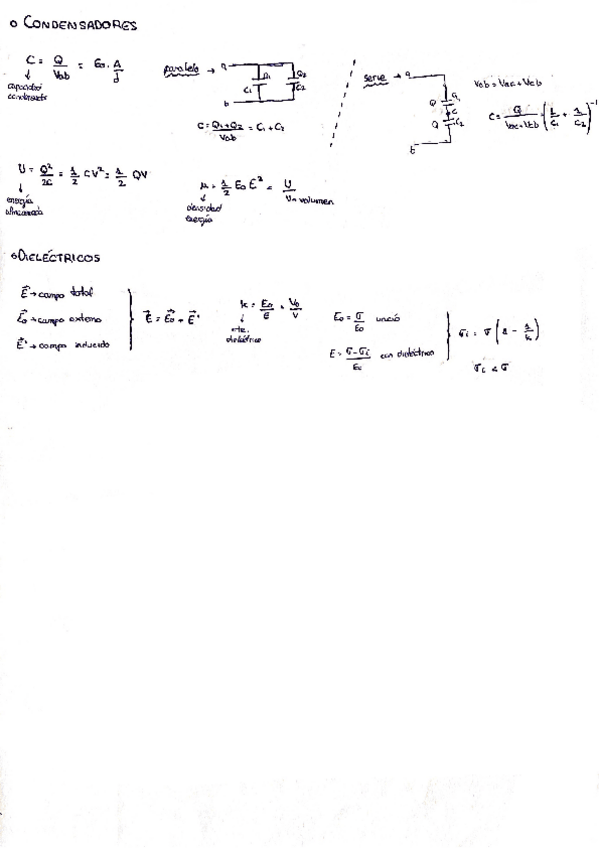 o CONDENSADORES
C = Q/Vab = E0 · A/d
↓
capacidad
condensador
paralelo → a
Q1 Q2
C1 C2
b
C = Q1+Q2/Vab = C1 + C2
serie → a
Q C1
c
Q C2
b
Vab = Vac + Vcb
C = Q/Vac+Vcb = (1/C1 + 1/C2)^-1
U = Q²/2C = 1/2 CV² = 1/2 QV
↓
energía
almacenada
u = 1/2 E0 E² = U/Un volumen
↓
densidad
energía
o DIELÉCTRICOS
E → campo total
E0 → campo externo
E' → campo inducido
E = E0 + E'
k = E0/E = V0/V
↓
cte.
dieléctrico
E0 = σ/E0 vacío
E = σ-σi/E0 con dieléctrico
σi = σ(1 - 1/k)
σi < σ